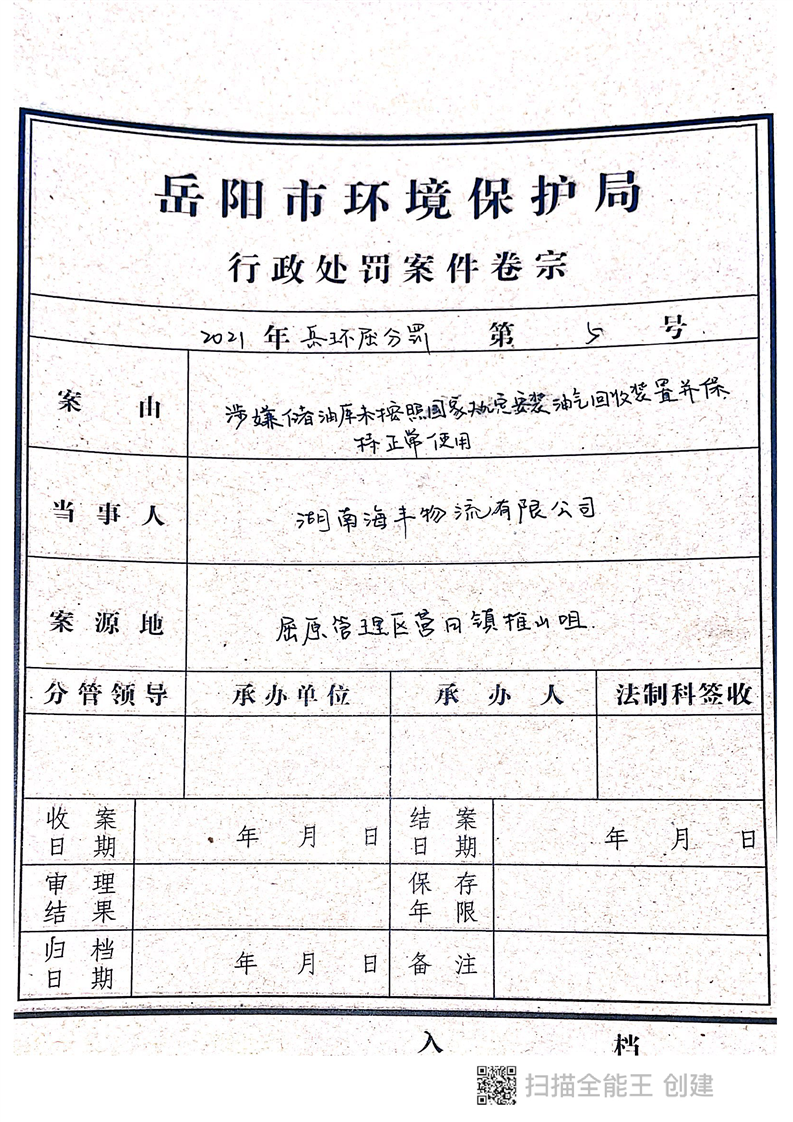 岳阳市环境保护局
行政处罚案件卷宗
2021 年 岳环屈分罚 第 5 号
案由 涉嫌储油库未按照国家规定安装油气回收装置并保
持正常使用
当事人 湖南海丰物流有限公司
案源地 屈原管理区营田镇推山咀
分管领导 承办单位 承办人 法制科签收
收案日期 年 月 日 结案日期 年 月 日
审理结果 保存年限
归档日期 年 月 日 备注
入 档
扫描全能王 创建